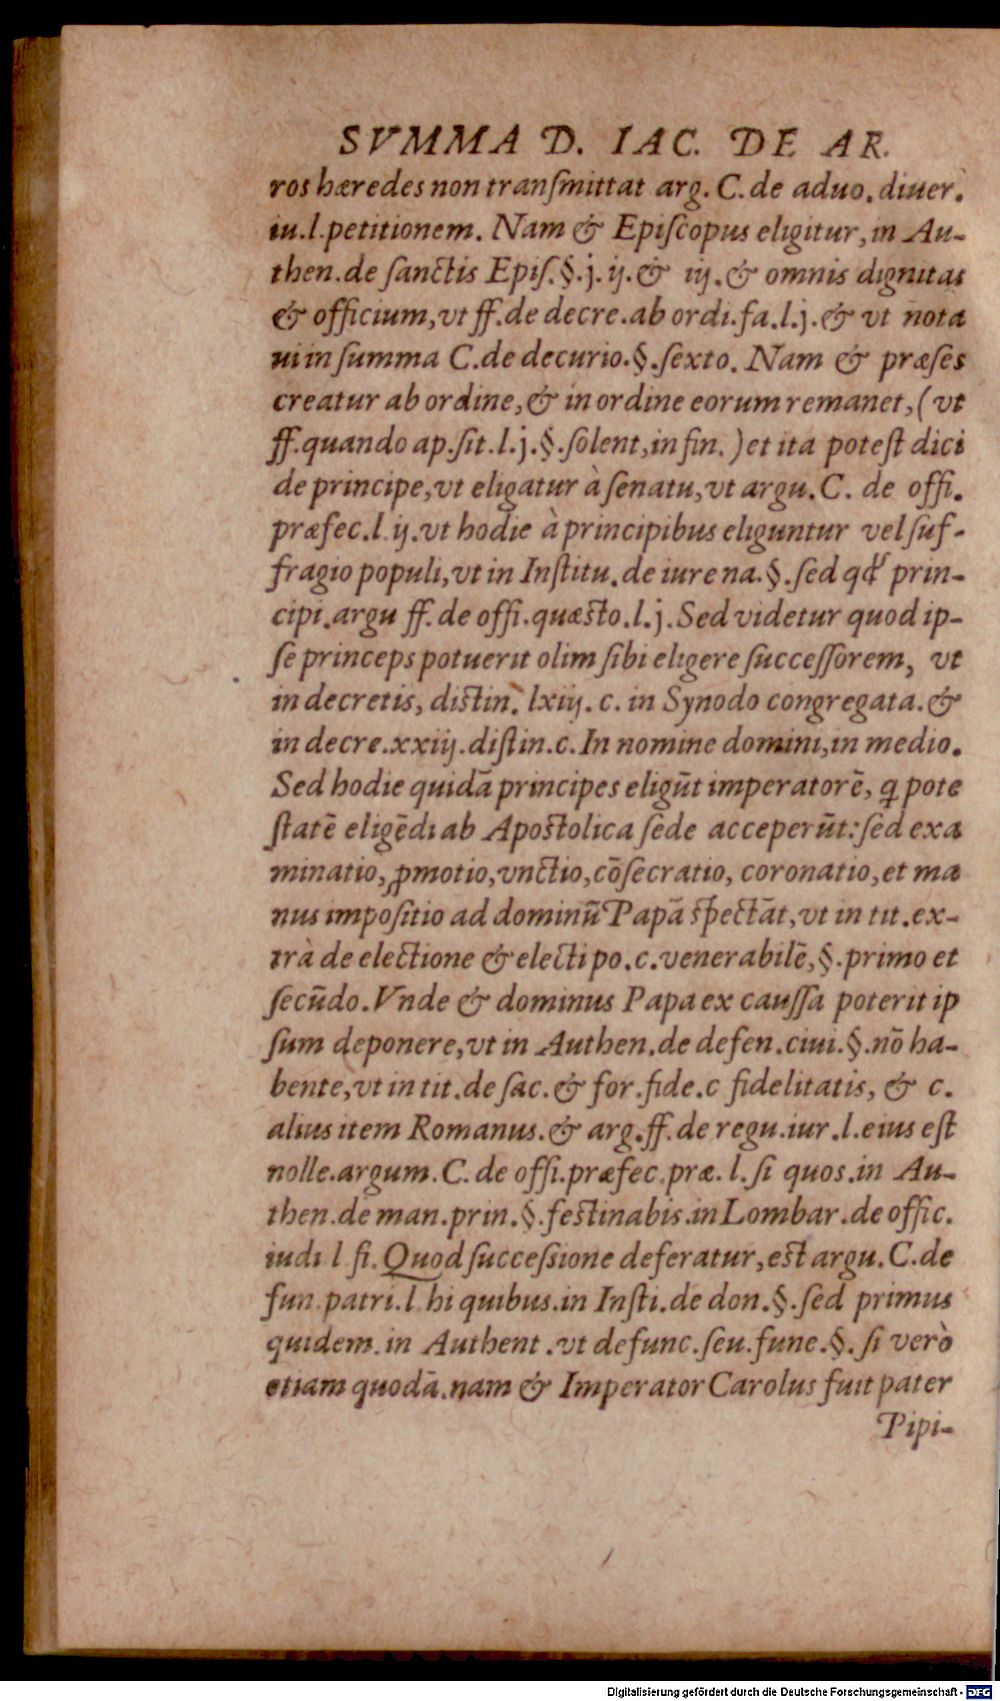 SVMMA D. IAC. DE AR.
ros hæredes non tranſmittat arg. C. de aduo. diuer.
iu. l. petitionem. Nam & Epiſcopus eligitur, in Au-
then. de ſanctis Epiſ. §. j. ij. & iij. & omnis dignitas
& officium, vt ff. de decre. ab ordi. fa. l. j. & vt nota
ui in ſumma C. de decurio. §. ſexto. Nam & præſes
creatur ab ordine, & in ordine eorum remanet, ( vt
ff. quando ap. ſit. l. j. §. ſolent, in fin. ) et ita poteſt dici
de principe, vt eligatur à ſenatu, vt argu. C. de offi.
præfec. l. ij. vt hodie à principibus eliguntur vel ſuf-
fragio populi, vt in Inſtitu. de iure na. §. ſed qđ prin-
cipi. argu ff. de offi. quæſto. l. j. Sed videtur quod ip-
ſe princeps potuerit olim ſibi eligere ſucceſſorem, vt
in decretis, diſtin. lxiij. c. in Synodo congregata. &
in decre. xxiij. diſtin. c. In nomine domini, in medio.
Sed hodie quidã principes eligũt imperatorẽ, ꝗ pote
ſtatẽ eligẽdi ab Apoſtolica ſede acceperũt: ſed exa
minatio, ꝓmotio, vnctio, cõſecratio, coronatio, et ma
nus impoſitio ad dominũ Papã ſpectãt, vt in tit. ex-
trà de electione & electi po. c. venerabilẽ, §. primo et
ſecũdo. Vnde & dominus Papa ex cauſſa poterit ip
ſum deponere, vt in Authen. de defen. ciui. §. nõ ha-
bente, vt in tit. de ſac. & for. fide. c fidelitatis, & c.
alius item Romanus. & arg. ff. de regu. iur. l. eius eſt
nolle. argum. C. de offi. præfec. præ. l. ſi quos. in Au-
then. de man. prin. §. feſtinabis. in Lombar. de offic.
iudi l fi. Quod ſucceſsione deferatur, eſt argu. C. de
fun. patri. l. hi quibus. in Inſti. de don. §. ſed primus
quidem. in Authent . vt defunc. ſeu. fune. §. ſi verò
etiam quodã. nam & Imperator Carolus fuit pater
Pipi-
Digitalisierung gefördert durch die Deutsche Forschungsgemeinschaft - DFG